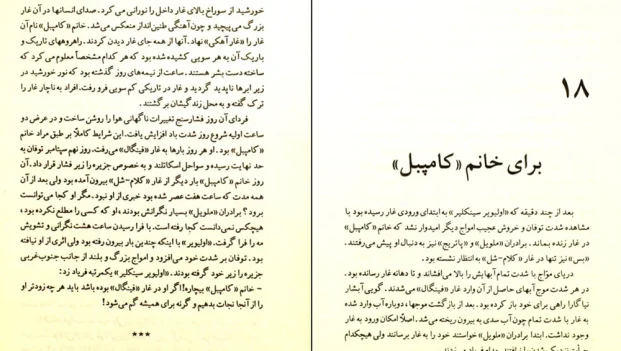 خورشید از سوراخ بالای غار داخل را نورانی می کرد. صدای انسانها در آن غار
بزرگ می پیچید و چون آهنگی طنین‌انداز منعکس می‌شد. خانم «کامپبل» نام آن
غار را «غار آهکی» نهاد. آنها از همه جای غار دیدن کردند. راهروههای تاریک و
باریک آن به هر سویی کشیده شده بود که هر کدام مشخصاً معلوم می‌کرد که
ساخته دست بشر هستند. ساعت از نیمه‌های روز گذشته بود که نور خورشید در
زیر ابرها ناپدید گردید و غار در تاریکی کم سویی فرو رفت. افراد به ناچار غار را
ترک گفته و به محل زندگیشان برگشتند.
فردای آن روز فشارسنج تغییرات ناگهانی هوا را روشن ساخت و در عرض دو
ساعت اولیه شروع روز شدت باد افزایش یافت. این شرایط کاملاً بر طبق مراد خانم
«کامپبل» بود. او هر روز بارها به غار «فینگال» می‌رفت. روز نهم سپتامبر توفان به
حد نهایت رسیده و سواحل اسکاتلند و به خصوص جزیره را زیر فشار قرار داد. آن
روز خانم «کامپبل» بار دیگر از غار «کلام-شل» بیرون آمده ولی بعد از آن
همه مدت که ساعت هفت عصر شده بود خبری از او نبود. مگر او کجا می‌توانست
برود؟ برادران «ملویل» بسیار نگرانش بودند، او که کسی را مطلع نکرده بود،
هیچکس نمی‌دانست کجا رفته است. با فرا رسیدن ساعت هشت نگرانی و تشویش
همه را فرا گرفت. «اولیویر» با اینکه چندین بار بیرون رفته بود ولی اثری از او نیافته
بود. توفان بر شدت خود می‌افزود و امواج بزرگ و بلند از جانب جنوب‌غربی
جزیره را زیر خود گرفته بودند. «اولیویر سینکلیر» یکمرتبه فریاد زد:
– خانم «کامپبل» بیچاره! اگر او در غار «فینگال» بوده باشد باید هر چه زودتر او
را از آنجا نجات بدهیم و گرنه برای همیشه گم می‌شود!
***
۱۸
برای خانم «کامپبل»
بعد از چند دقیقه که «اولیویر سینکلیر» به ابتدای ورودی غار رسیده بود با
مشاهده شدت توفان و خروش عجیب امواج دیگر امیدوار نشد که خانم «کامپبل»
در غار زنده بماند. برادران «ملویل» و «پاتریج» نیز به دنبال او پیش می‌رفتند.
«بس» نیز تنها در غار «کلام-شل» به انتظار نشسته بود.
دریای موّاج با شدت تمام آبهایش را بالا می‌افشاند و تا دهانه غار رسانده بود.
در هر شدت موج آبهای حاصل از آن وارد غار «فینگال» می‌شدند. گویی آبشار
نیاگارا راهی برای خود باز کرده بود. بعد از بازگشت موجها، دوباره آب وارد شده
به غار با شدت تمام چون آب سدی به بیرون ریخته می‌شد. اصلاً امکان ورود به غار
وجود نداشت. ابتدا برادران «ملویل» خواستند خود را به غار برسانند ولی هیچکدام